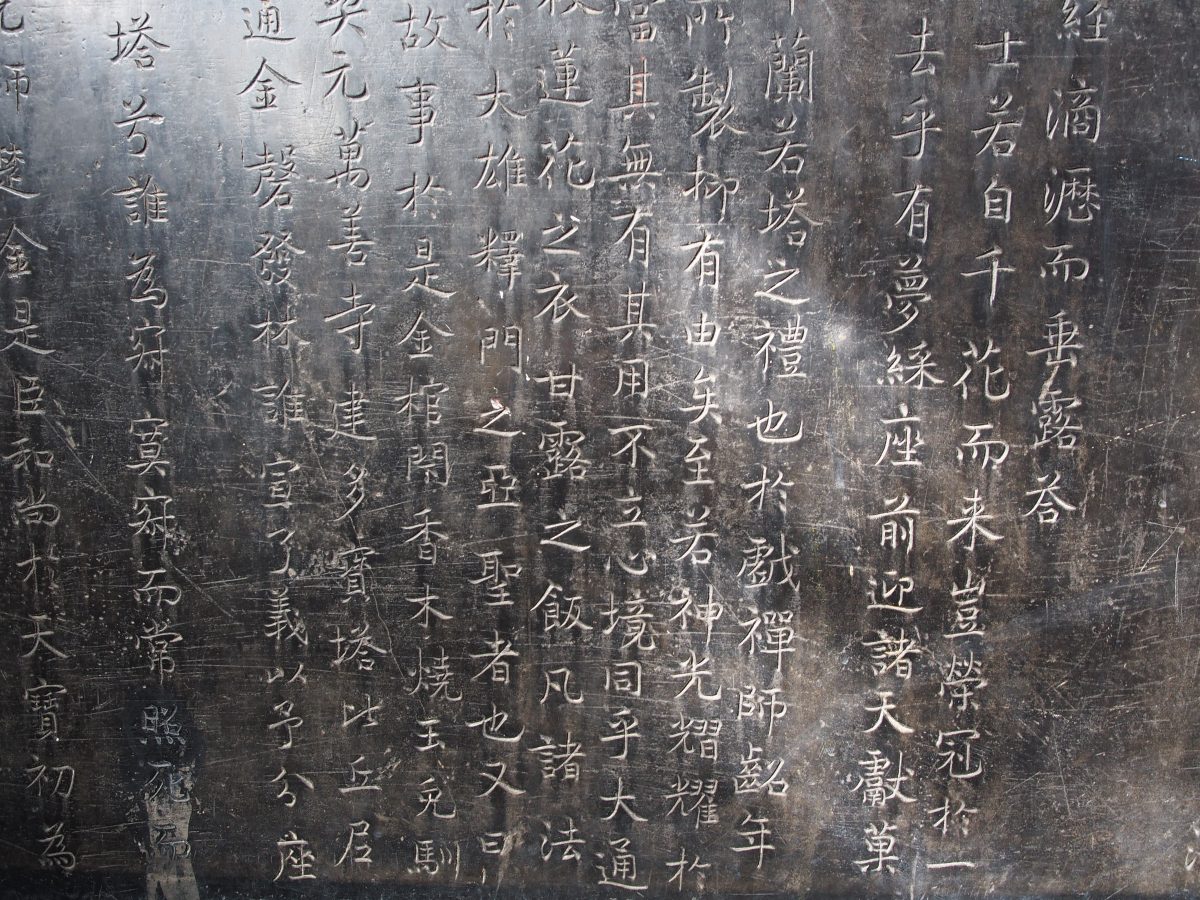 経滴瀝而垂露荅
士若自千花而来豈榮冠於一
去乎有夢綵座前迎諸天獻菓
蘭若塔之禮也於戲禪師齠年
所製抑有由矣至若神光熠耀於
當其無有其用不立心境同乎大通
蓮花之衣甘露之飯凡諸法
於大雄釋門之亞聖者也又曰
故事於是金棺閇香木燒玉兎馴
矣元萬善寺建多寶塔比丘尼
通金磬發林誰宣了義以予分座
塔兮誰為寂寞寂而常照
師楚金是臣和尚於天寶初為